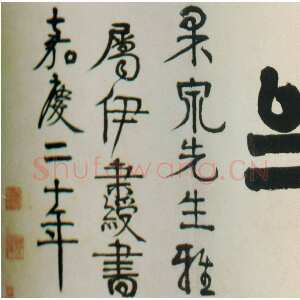 果泉先生雅
属伊秉绶書
嘉慶二十年
Shufawang.CN